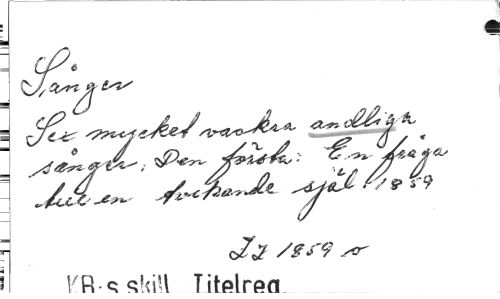 Sånger
Sex mycket vackra andliga
sånger; Den första: En fråga
till en tvekande själ. 1859
1859
KB:s skill. Titelreg.